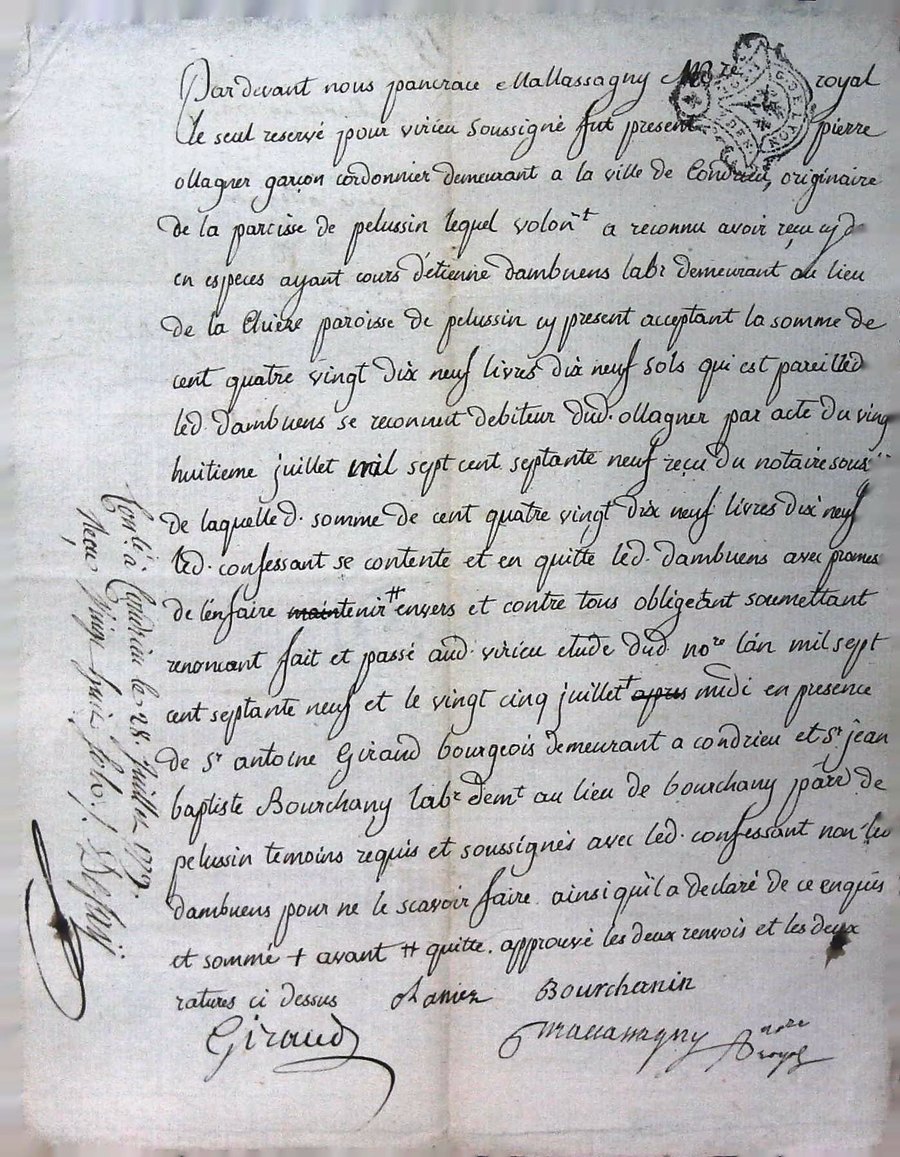 Par devant nous pancrace Mallassagny No.re royal
le seul reservé pour virieu soussigné fut present pierre
ollagner garçon cordonnier demeurant a la ville de Condrieu, originaire
de la paroisse de pelussin lequel volon.t a reconnu avoir reçu cy d
en especes ayant cours d'étienne dambuens lab.r demeurant au lieu
de la Chiere paroisse de pelussin cy present acceptant la somme de
cent quatre vingt dix neuf livres dix neuf sols qui est pareille d
led. dambuens se reconnut debiteur dud. ollagner par acte du ving
huitieme juillet mil sept cent septante neuf reçu du notaire sous
de laquelle d. somme de cent quatre vingt dix neuf livres dix neuf
led. confessant se contente et en quitte led. dambuens avec promes
de l'enfaire maintenir # envers et contre tous obligeant soumettant
renoncant fait et passé aud. virieu etude dud. no.re l'an mil sept
cent septante neuf et le vingt cinq juillet + apres midi en presence
de S.r antoine Giraud bourgeois demeurant a condrieu et S.r jean
baptiste Bourchany lab.r dem.t au lieu de bourchany parr. de
pelussin temoins requis et soussignés avec led. confessant non led
dambuens pour ne le scavoir faire ainsi qu'il a declaré de ce enquis
et sommé + avant # quitte. approuvé les deux renvois et les deux
ratures ci dessus olanier Bourchanin
Giraud Mallassagny no.re royal
G. DE LYON
Con.lé à Condrieu le 28. Juillet 1779.
Reçu vingt huit sols.